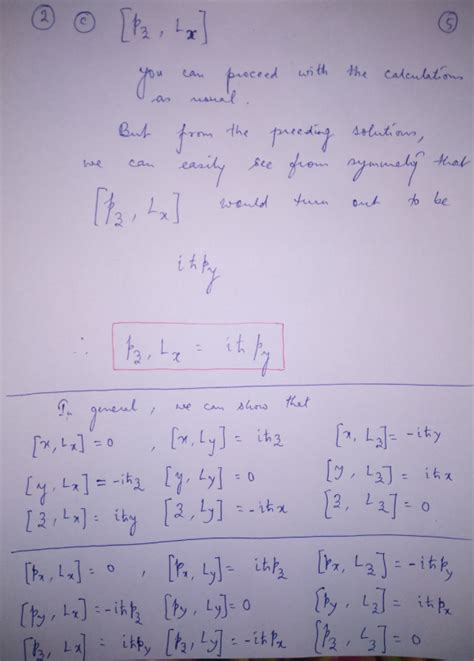 ② ⓒ [p_z, L_x] ⑤
you can proceed with the calculations
as usual.
But from the preeding solutions,
we can easily see from symmety that
[p_z, L_x] would turn out to be
iħp_y
∴ p_z, L_x = iħ p_y
In general, we can show that
[x, L_x] = 0 , [x, L_y] = iħz [x, L_z] = -iħy
[y, L_x] = -iħz [y, L_y] = 0 [y, L_z] = iħx
[z, L_x] = iħy [z, L_y] = -iħx [z, L_z] = 0
[p_x, L_x] = 0 , [p_x, L_y] = iħp_z [p_x, L_z] = -iħp_y
[p_y, L_x] = -iħp_z [p_y, L_y] = 0 [p_y, L_z] = iħp_x
[p_z, L_x] = iħp_y [p_z, L_y] = -iħp_x [p_z, L_z] = 0